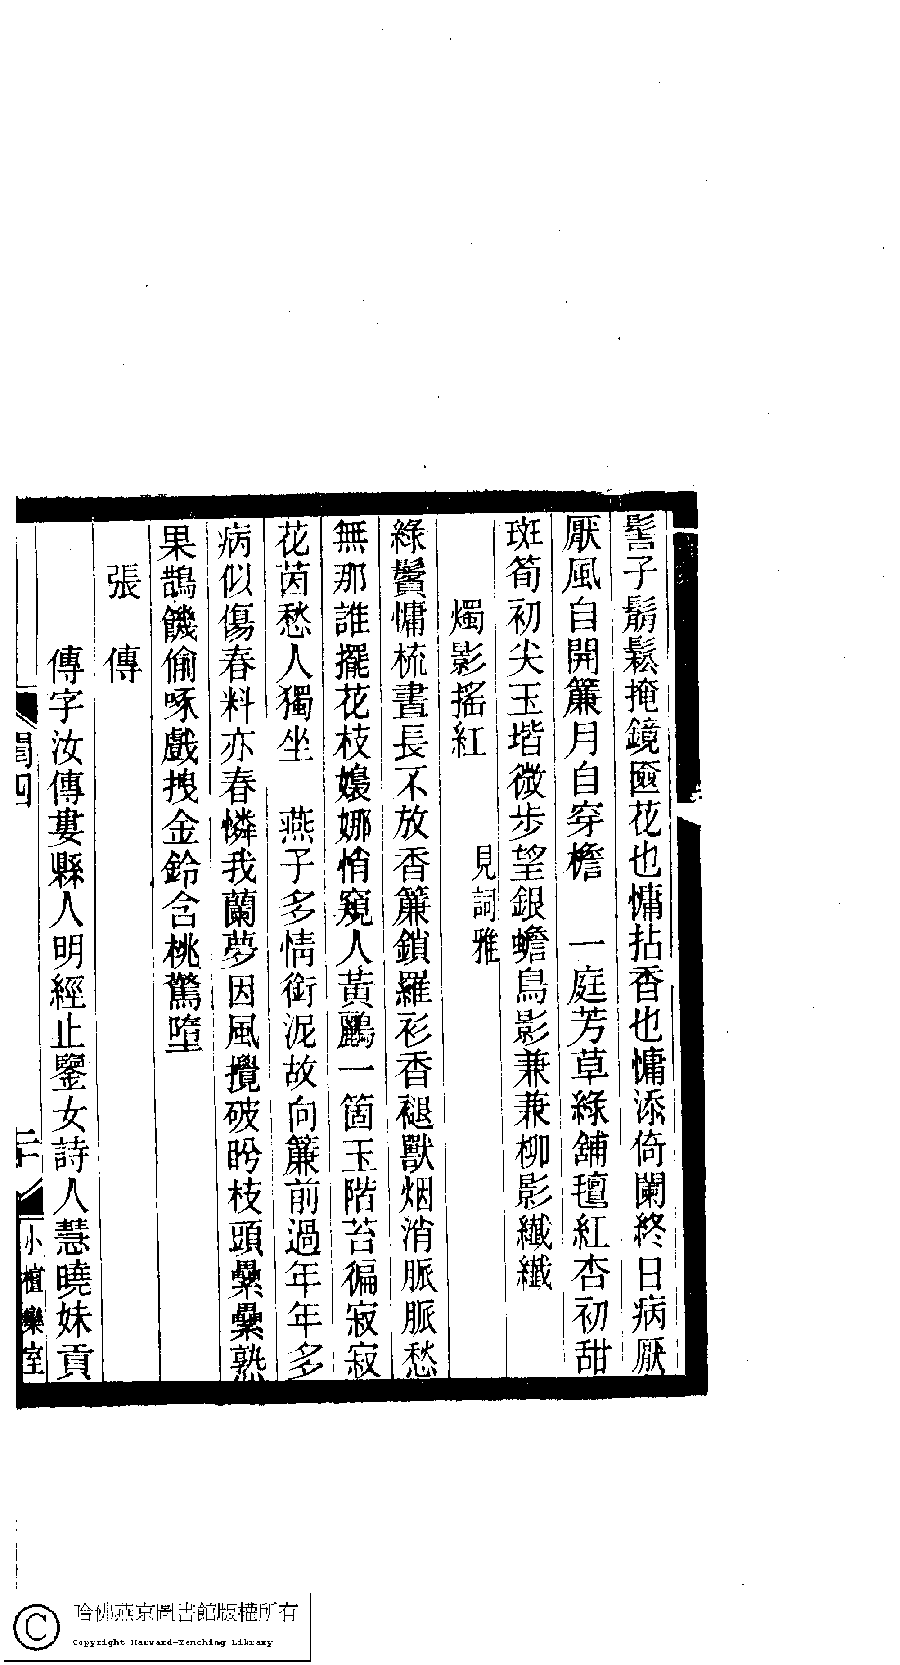 髻子鬅鬆掩鏡匳花也慵拈香也慵添倚闌終日病厭
厭風自開簾月自穿檐　一庭芳草綠鋪氊紅杏初甜
斑筍初尖玉堦微步望銀蟾鳥影兼兼柳影纖纖
燭影搖紅　見詞雅
綠鬢慵梳晝長不放香簾鎖羅衫香褪獸烟消脈脈愁
無那誰擺花枝嬝娜悄窺人黃鸝一箇玉階苔徧寂寂
花茵愁人獨坐　燕子多情銜泥故向簾前過年年多
病似傷春料亦春憐我蘭夢因風攪破盻枝頭纍纍熟
果鵲饑偷啄戲拽金鈴含桃驚墮
張　傳
傳字汝傳婁縣人明經止鑒女詩人慧曉妹貢
閨四
二
小檀欒室
哈佛燕京圖書館版權所有
Copyright Harvard-Yenching Library